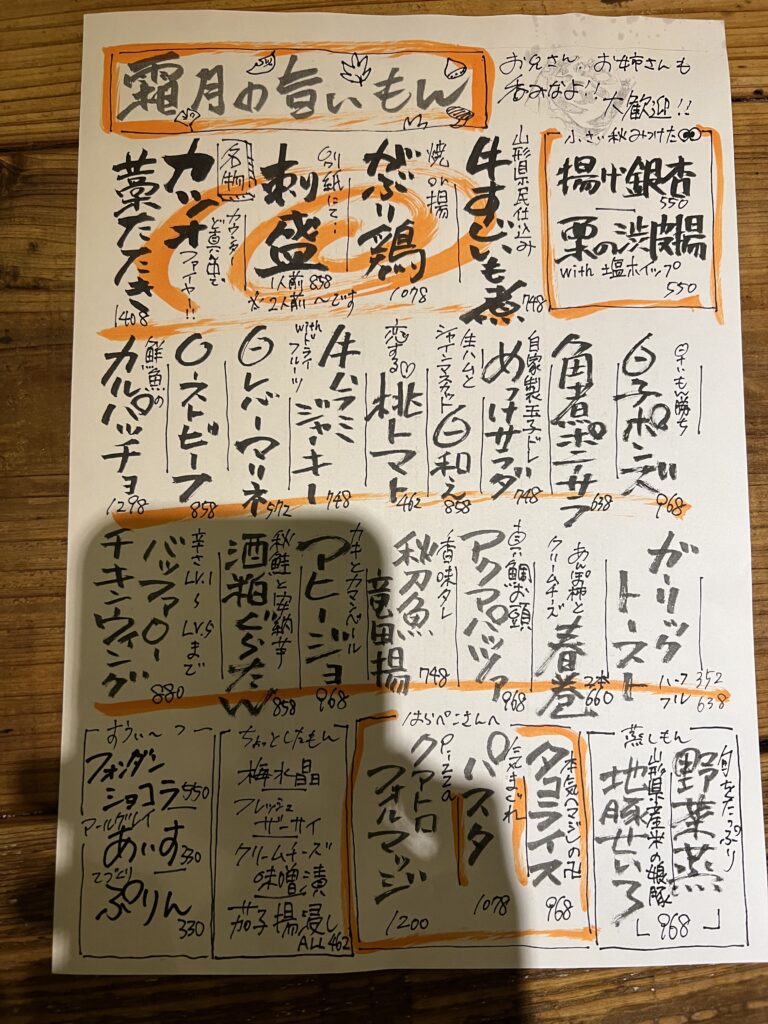 霜月の旨いもん
お兄さん、お姉さんも
呑みなよ!! 大歓迎!!
小さい秋みつけた
揚げ銀杏
550
栗の渋皮揚
with 塩ホイップ
550
山形県民仕込み
牛すじいも煮
748
焼 or 揚
がぶり鶏
1078
別紙にて…
刺盛
1人前 858
※2人前〜です
名物
カツオ
藁たたき
カウンターど真ん中で
ファイヤー!!
1408
早いもん勝ち
白子ポンズ
968
角煮ポテサラ
638
自家製玉子ドレ
めっけサラダ
748
生ハムと
シャインマスカット
白和え
858
恋する♡
桃トマト
462
牛ハラミ
ジャーキー
with ドライ
フルーツ
748
白レバーマリネ
572
ローストビーフ
858
鮮魚の
カルパッチョ
1298
ガーリック
トースト
ハーフ 352
フル 638
あんぽ柿と
クリームチーズ
春巻
2本 660
真鯛お頭
アクアパッツァ
968
香味タレ
秋刀魚
竜田揚
748
カキとカマンベール
アヒージョ
968
秋鮭と安納芋
酒粕ぐらたん
858
辛さLV.1〜LV.5まで
バッファロー
チキンウィング
880
蒸しもん
旬をたっぷり
野菜蒸し
山形県産米の娘豚
地豚せいろ
968
はらぺこさんへ
本気ヘマジしの卍
タコライス
968
気まぐれ
パスタ
1078
Pizza
クアトロ
フォルマッジ
1200
ちょっとしたもん
梅水晶
フレッシュ
ザーサイ
クリームチーズ
味噌漬
茄子揚浸し
ALL 462
すうぃーつ
フォンダン
ショコラ 550
アールグレイ
あいす 330
てづくり
ぷりん
330